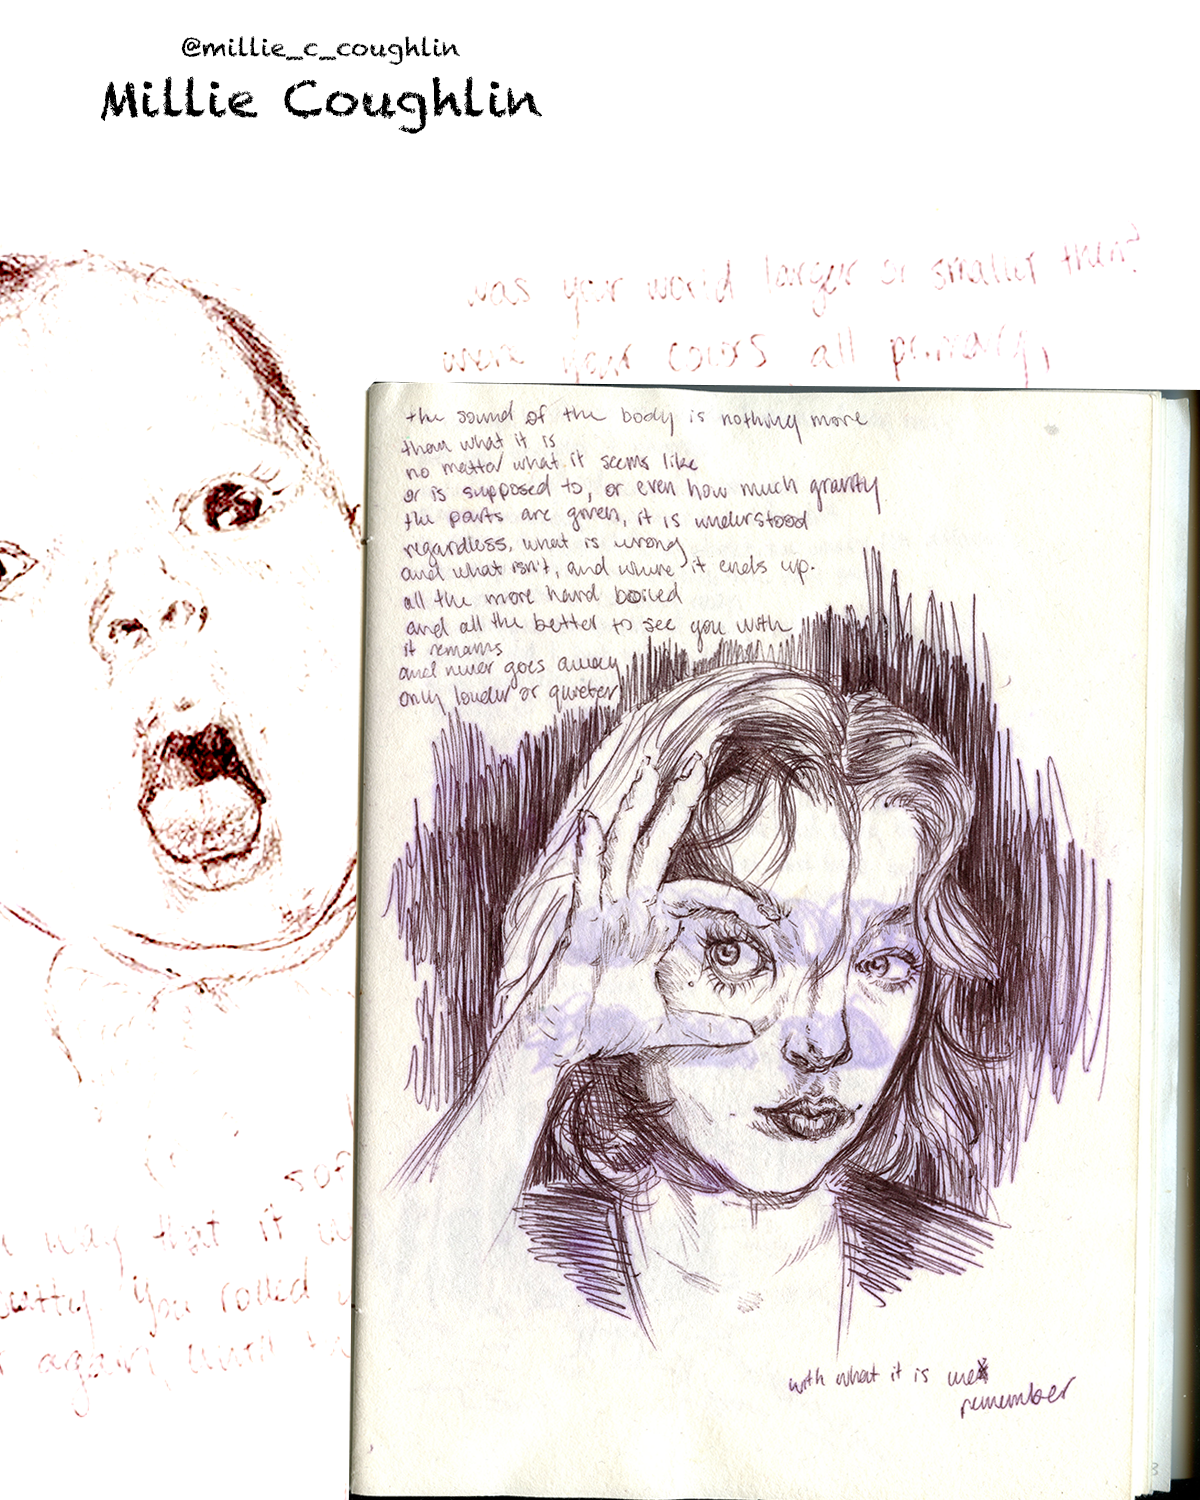 @millie_c_coughlin
Millie Coughlin
was your world larger or smaller then?
were your colors all primary,
the sound of the body is nothing more
than what it is
no matter what it seems like
or is supposed to, or even how much gravity
the parts are given, it is understood
regardless, what is wrong
and what isn't, and where it ends up.
all the more hard boiled
and all the better to see you with
it remains
and never goes away
only louder or quieter
sof
way that it
you rolled
again, until
with what it is we
remember